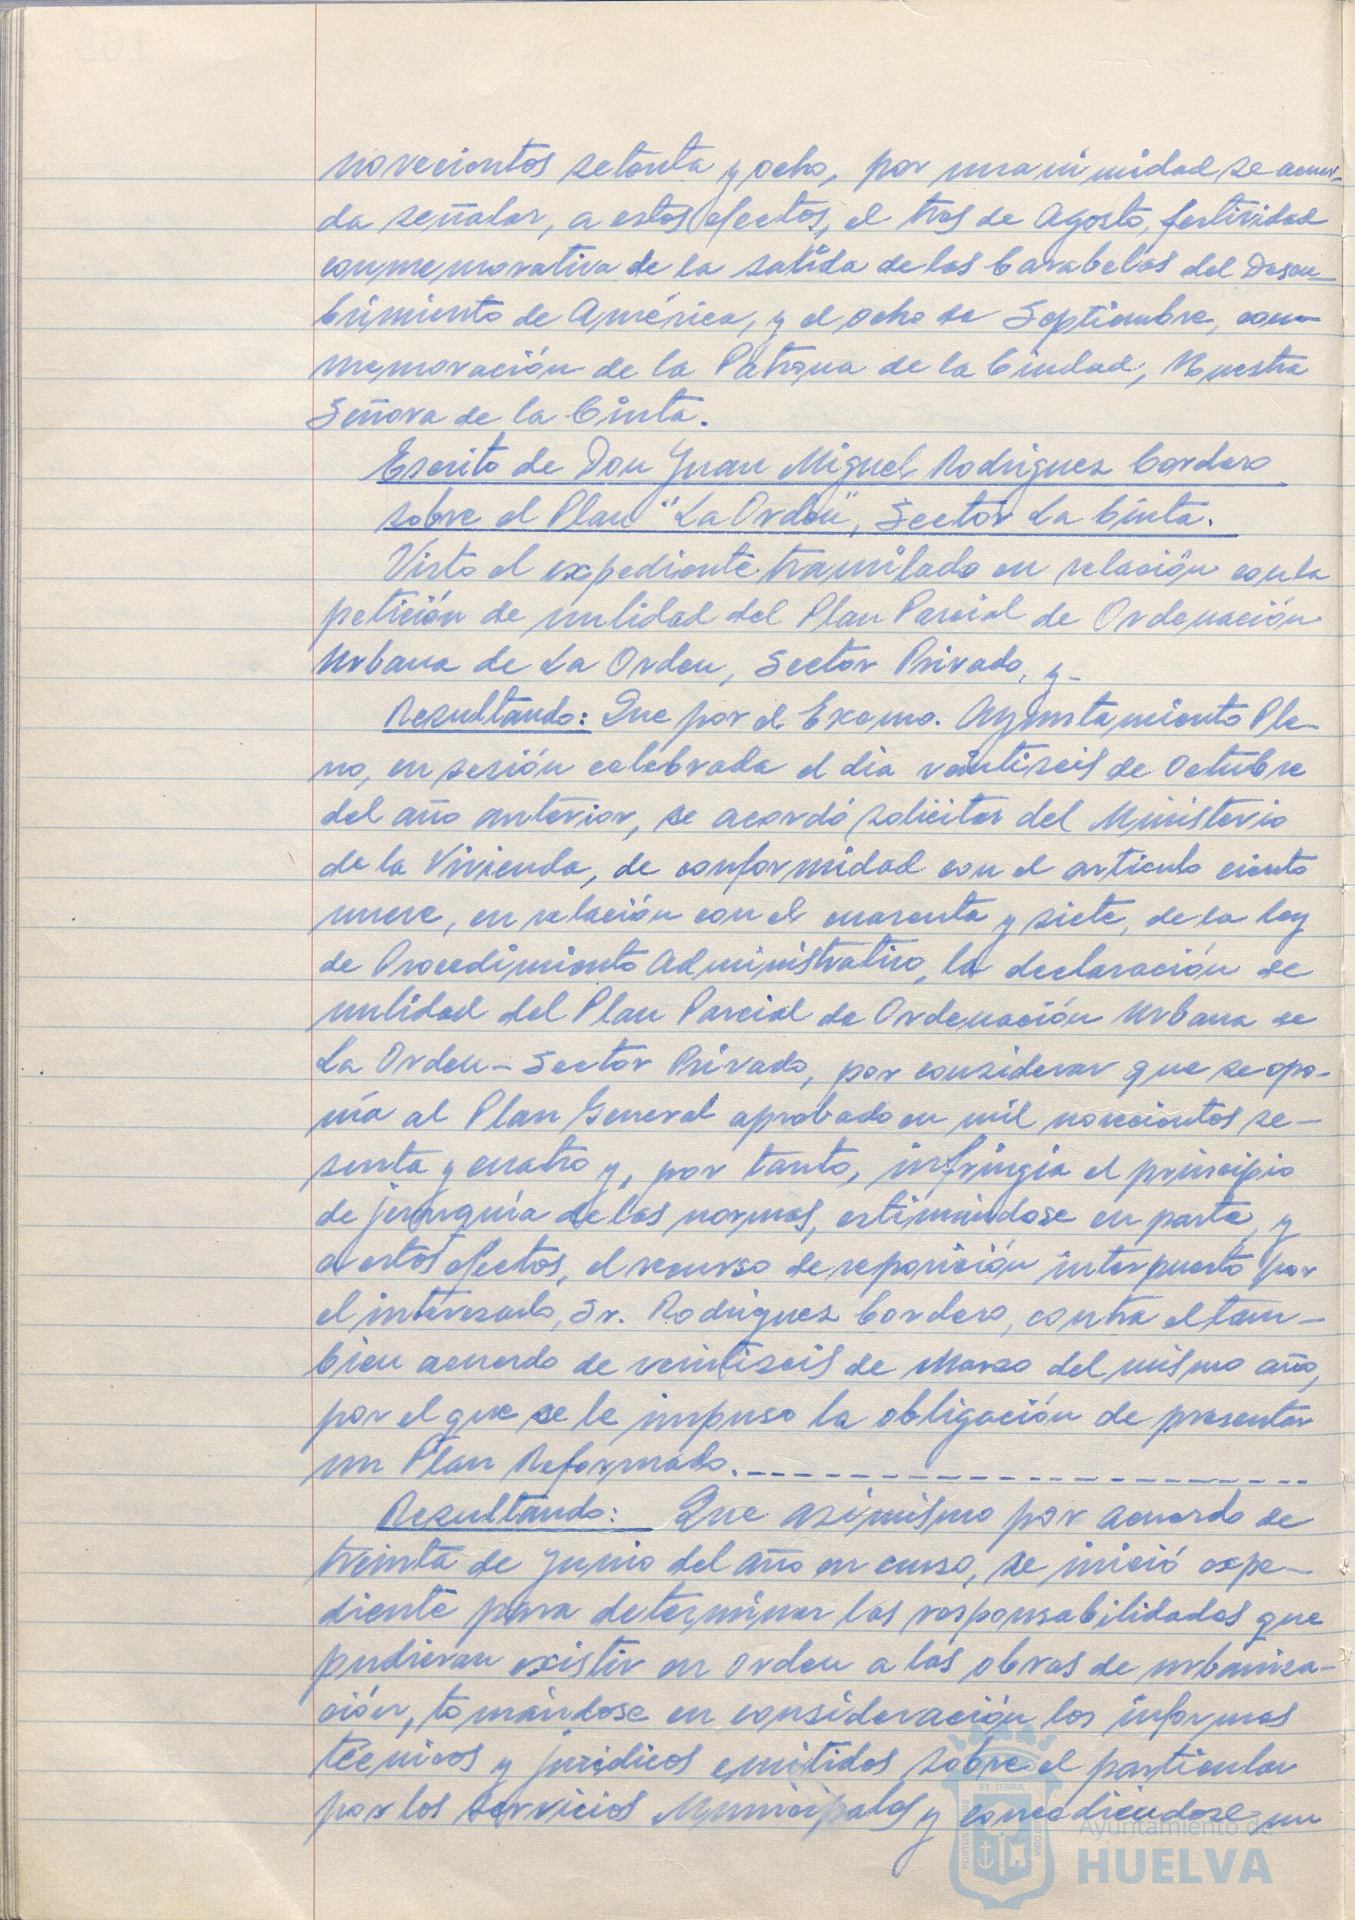 novecientos setenta y ocho, por unanimidad se acuer-
da señalar, a estos efectos, el tres de Agosto, festividad
conmemorativa de la salida de las Carabelas del Descu-
brimiento de América, y el ocho de Septiembre, con-
memoración de la Patrona de la Ciudad, Nuestra
Señora de la Cinta.
Escrito de Don Juan Miguel Rodriguez Cordero
sobre el Plan "La Orden", Sector La Cinta.
Visto el expediente tramitado en relación con la
petición de nulidad del Plan Parcial de Ordenación
Urbana de La Orden, Sector Privado, y-
Resultando: Que por el Excmo. Ayuntamiento Ple-
no, en sesión celebrada el dia veintiseis de Octubre
del año anterior, se acordó solicitar del Ministerio
de la Vivienda, de conformidad con el articulo ciento
nueve, en relación con el cuarenta y siete, de la ley
de Procedimiento Administrativo, la declaración de
nulidad del Plan Parcial de Ordenación Urbana de
La Orden - Sector Privado, por considerar que se opo-
nía al Plan General aprobado en mil novecientos se-
senta y cuatro y, por tanto, infringia el principio
de jerarquía de las normas, estimándose en parte, y
a estos efectos, el recurso de reposición interpuesto por
el interesado, Sr. Rodriguez Cordero, contra el tam-
bien acuerdo de veintiseis de Marzo del mismo año,
por el que se le impuso la obligación de presentar
un Plan Reformado.
Resultando: Que asimismo por acuerdo de
treinta de Junio del año en curso, se inició expe-
diente para determinar las responsabilidades que
pudieran existir en orden a las obras de urbaniza-
ción, tomándose en consideración los informes
técnicos y jurídicos emitidos sobre el particular
por los Servicios Municipales y concediendose un
ET TERRAE
PORTUS MARIS
CUSTODIA
Ayuntamiento de
HUELVA